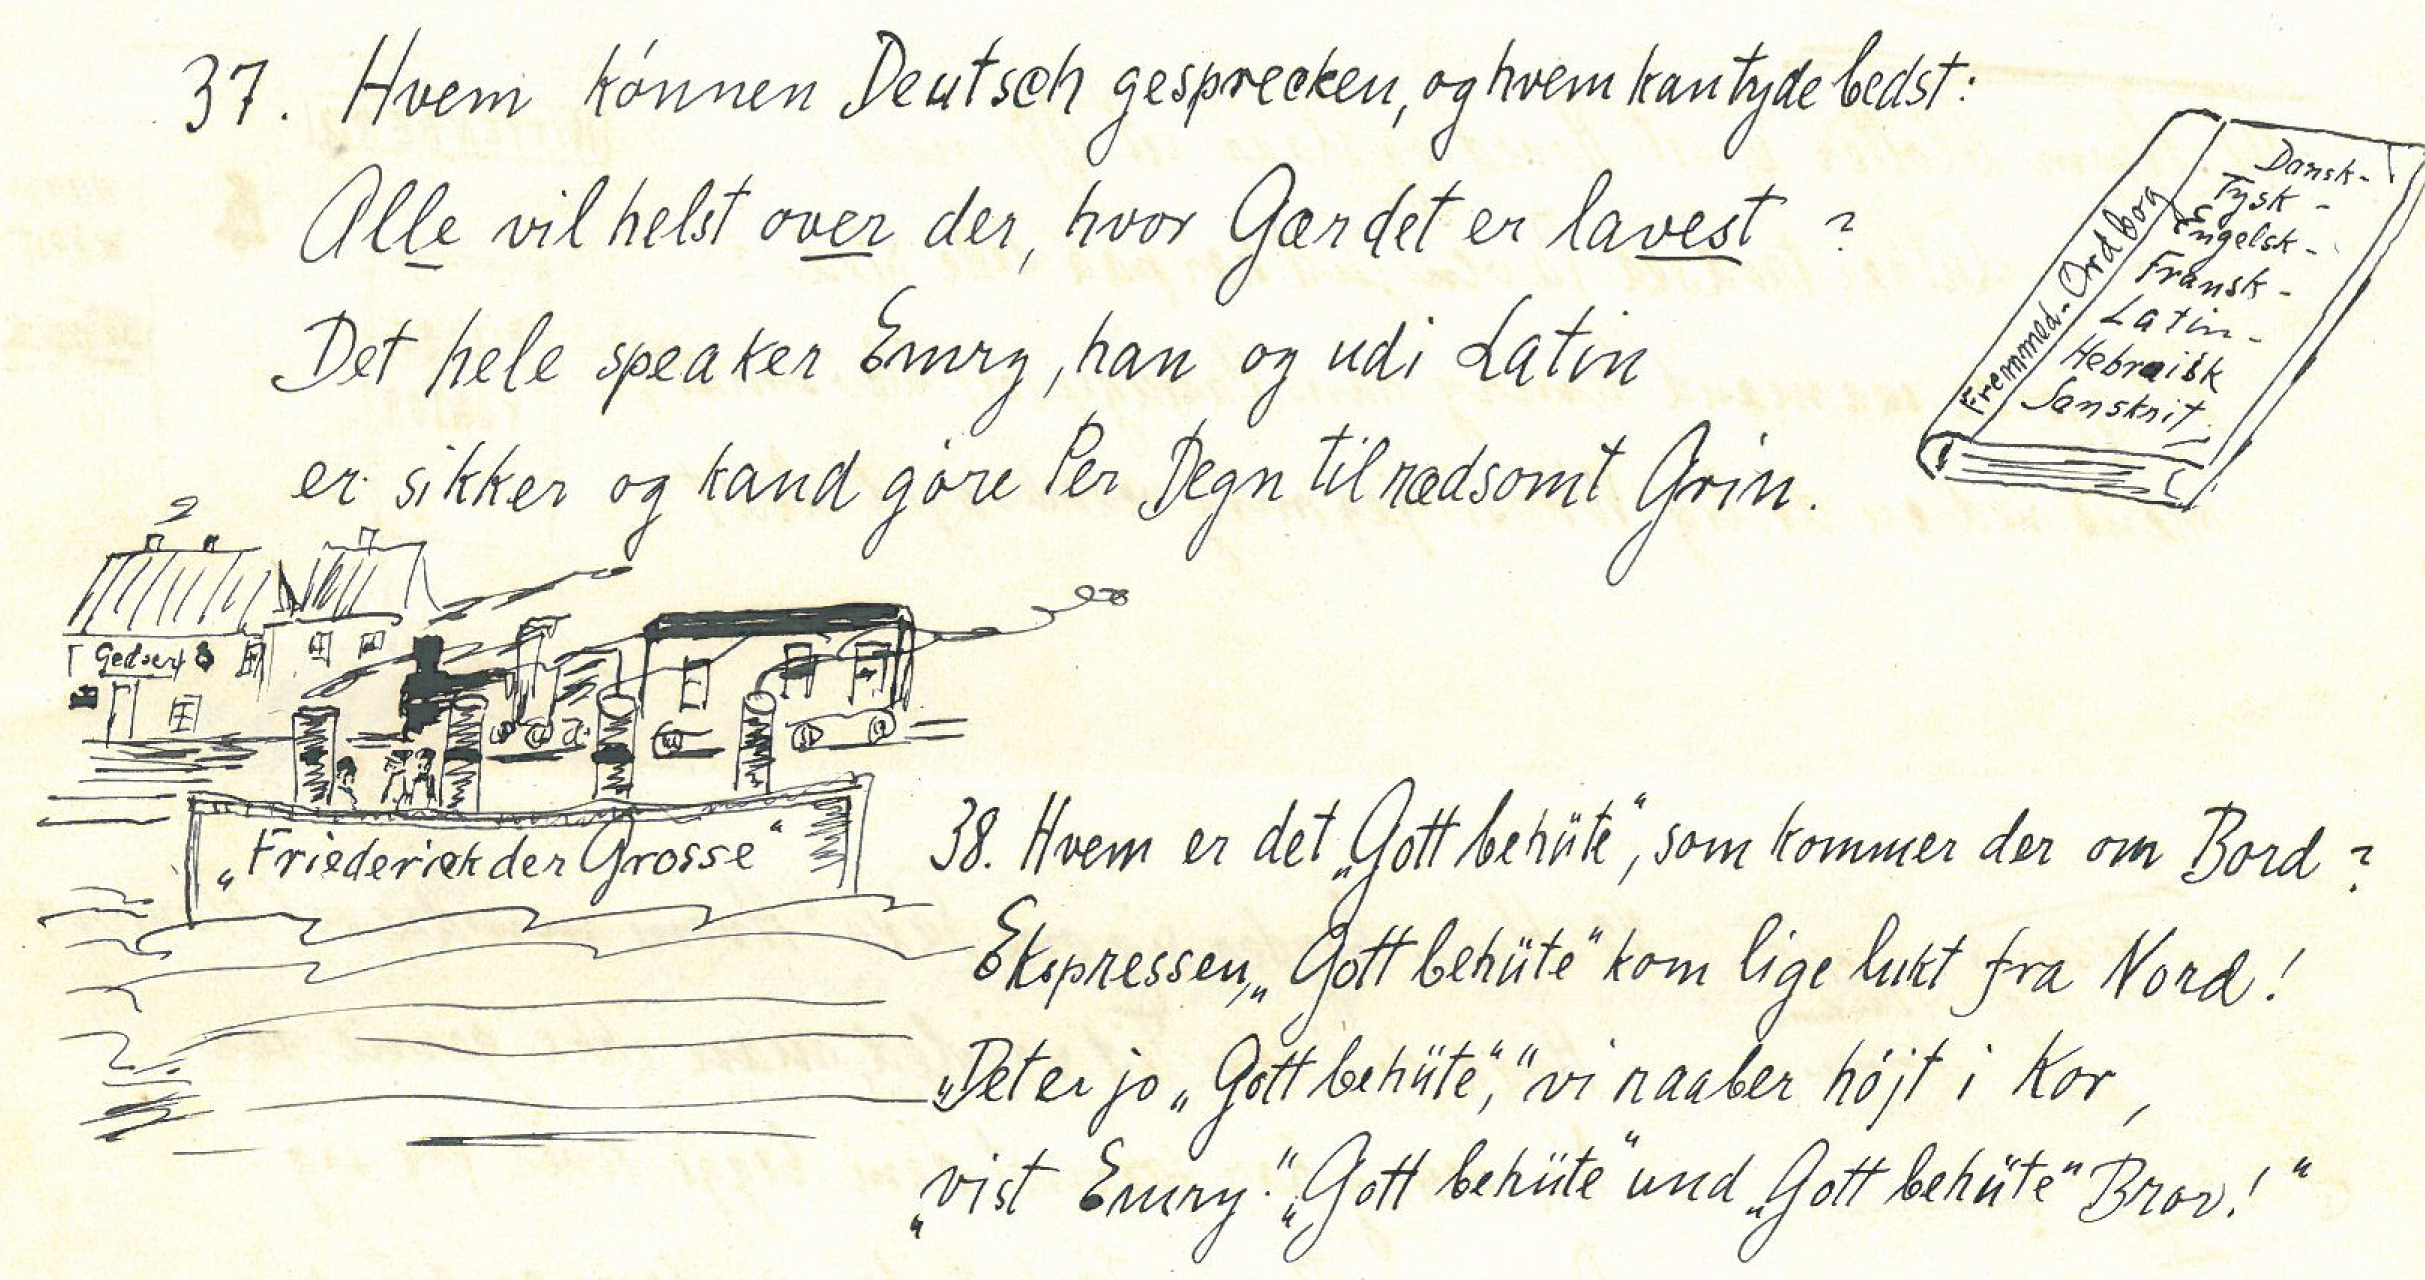 37. Hvem können Deutsch gesprecken, og hvem kan tyde bedst:
Alle vil helst over der, hvor Gærdet er lavest ?
Det hele speaker Emry, han og udi Latin
er sikker og kand göre Per Degn til rædsomt Grin.
Fremmed-Ordbog
Dansk-
Tysk -
Engelsk-
Fransk -
Latin-
Hebraisk
Sanskrit
Gedser
„Friederick der Grosse“
38. Hvem er det „Gott behüte“, som kommer der om Bord ?
Ekspressen, „Gott behüte“ kom lige lukt fra Nord!
„Det er jo „Gott behüte“,“ vi raaber höjt i Kor,
„vist Emry.“ „Gott behüte“ und „Gott behüte“ Bror!“